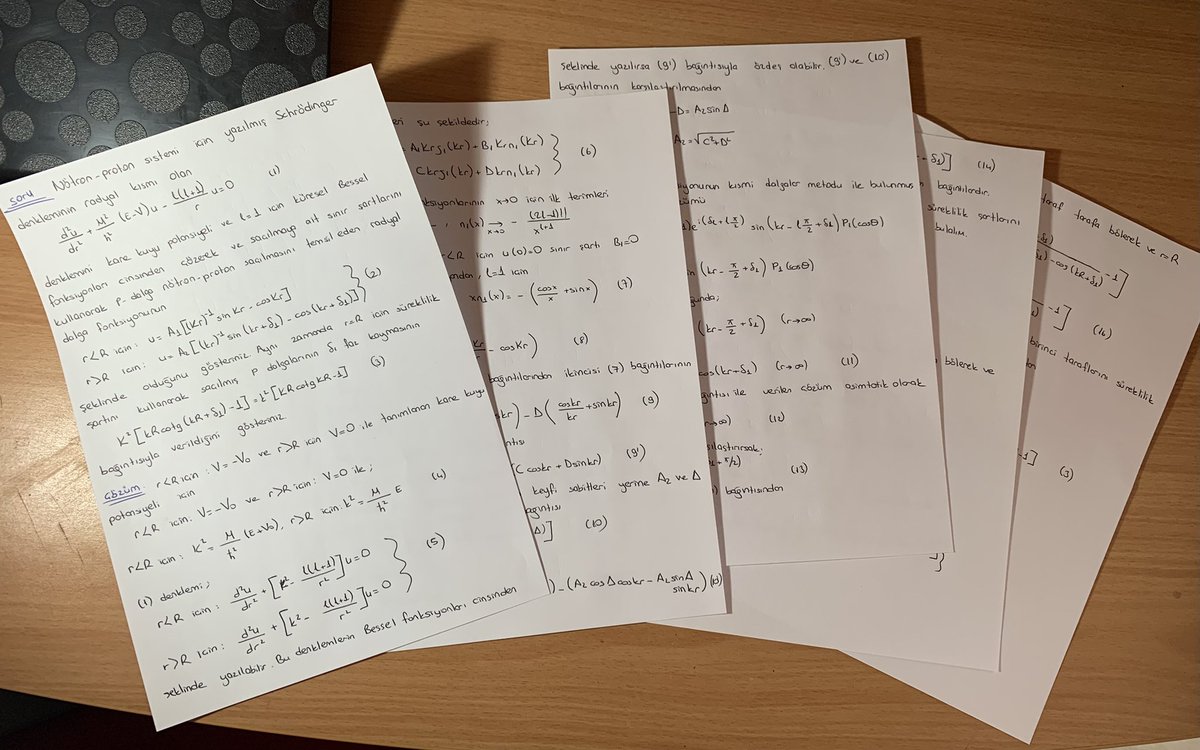 soru Nötron-proton sistemi için yazılmış Schrödinger
denkleminin radyal kısmı olan
d²u/dr² + M/ħ² (E-V)u - l(l+1)/r u=0 (1)
denklemini kare kuyu potansiyeli ve l=1 için küresel Bessel
fonksiyonları cinsinden çözerek ve saçılmaya ait sınır şartlarını
kullanarak p-dalga nötron-proton saçılmasını temsil eden radyal
dalga fonksiyonunun
r<R için: u=A₁[(Kr)⁻¹ sin Kr - cosKr]
r>R için: u=A₂[(kr)⁻¹ sin(kr+δ₁) - cos(kr+δ₁)] } (2)
şeklinde olduğunu gösteriniz. Aynı zamanda r=R için süreklilik
şartını kullanarak saçılmış p dalgalarının δ₁ faz kaymasının
K²[kRcotg(kR+δ₁)-1]=k²[KRcotgKR-1] (3)
bağıntısıyla verildiğini gösteriniz.
çözüm: r<R için: V=-V₀ ve r>R için V=0 ile tanımlanan kare kuyu
potansiyeli için
r<R için: V=-V₀ ve r>R için: V=0 ile;
r<R için: K²= M/ħ² (E+V₀), r>R için: k²= M/ħ² E (4)
(1) denklemi;
r<R için: d²u/dr² + [K²- l(l+1)/r²]u=0
r>R için: d²u/dr² + [k²- l(l+1)/r²]u=0 } (5)
şeklinde yazılabilir. Bu denklemlerin Bessel fonksiyonları cinsinden
eri şu şekildedir;
A₁Krj₁(Kr)+B₁Krn₁(Kr)
Ckrj₁(kr)+Dkrn₁(kr) } (6)
fonksiyonlarının x→0 için ilk terimleri
, n₁(x) x→0 → - (2l-1)!!/x^(l+1)
r<R için u(0)=0 sınır şartı B₁=0
ından, l=1 için
xn₁(x)= - (cosx/x + sinx) (7)
Kr/Kr - cosKr) (8)
bağıntılarından ikincisi (7) bağıntılarının
coskr) - D(coskr/kr + sinkr) (9)
ntısı
(C coskr + Dsinkr) (9')
keyfi sabitleri yerine A₂ ve Δ
bağıntısı
Δ)] (10)
) - (A₂ cosΔ coskr - A₂ sinΔ sinkr) (10')
şeklinde yazılırsa (9') bağıntısıyla özdeş olabilir. (9') ve (10')
bağıntılarının karşılaştırılmasından
-D= A₂sinΔ
A₂=√(C²+D²)
siyonunun kısmi dalgalar metodu ile bulunmuş
çözümü
)e^i(δₗ+lπ/2) sin(kr-lπ/2+δₗ) Pₗ(cosθ)
in(kr-π/2+δ₁) P₁(cosθ)
ğunda;
(kr-π/2+δ₁) (r→∞)
cos(kr+δ₁) (r→∞) (11)
ğıntısı ile verilen çözüm asimtotik olarak
r→∞) (12)
şılaştırırsak;
+π/2) (13)
) bağıntısından
-δ₁)] (14)
bağıntılarıdır.
süreklilik şartlarını
bulalım.
bölerek ve
taraf tarafa bölerek ve r=R
δ₁)-cos(kR+δ₁) -1]
-1] (16)
birinci taraflarını süreklilik
-1] (3)